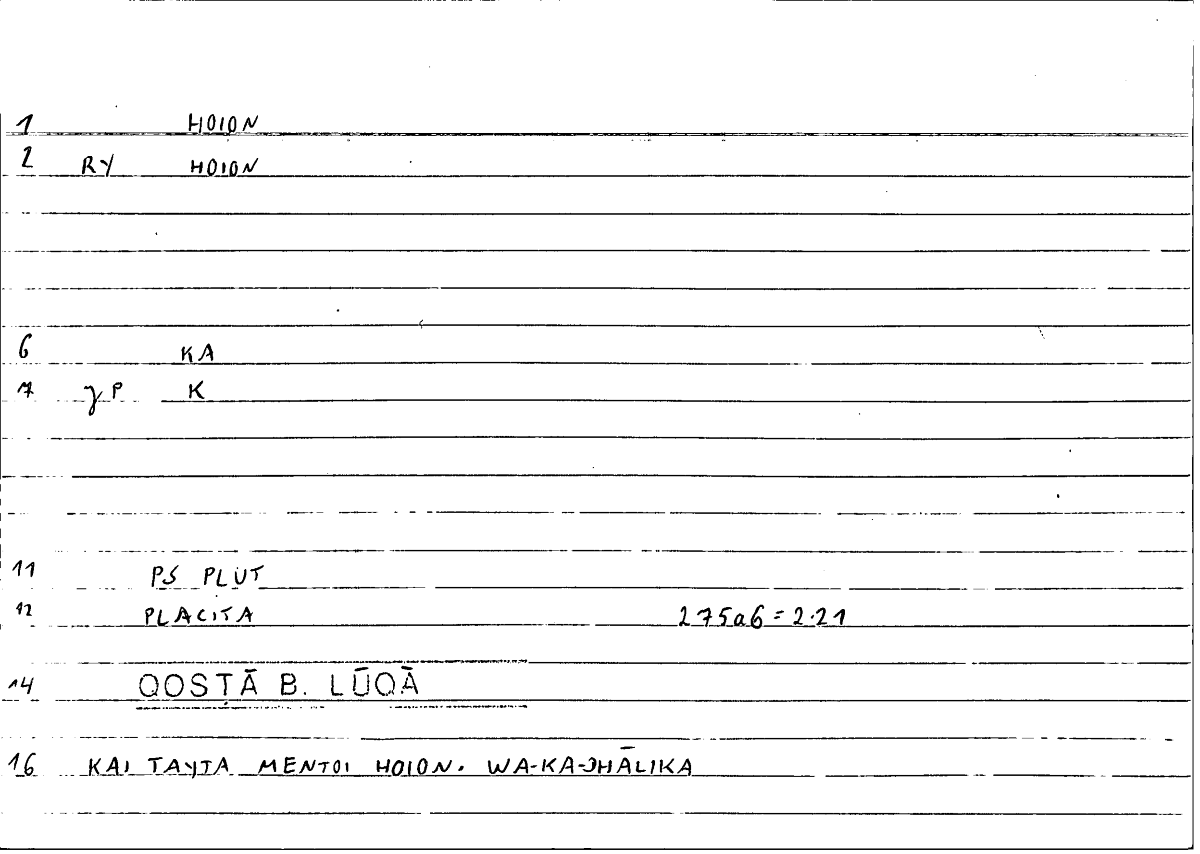 1 HOION
2 RY HOION
6 KA
7 γP K
11 PS PLUT
12 PLACITA 275a6 = 2.21
14 QOSṬĀ B. LŪQĀ
16 KAI TAYTA MENTOI HOION. WA-KA-JHĀLIKA